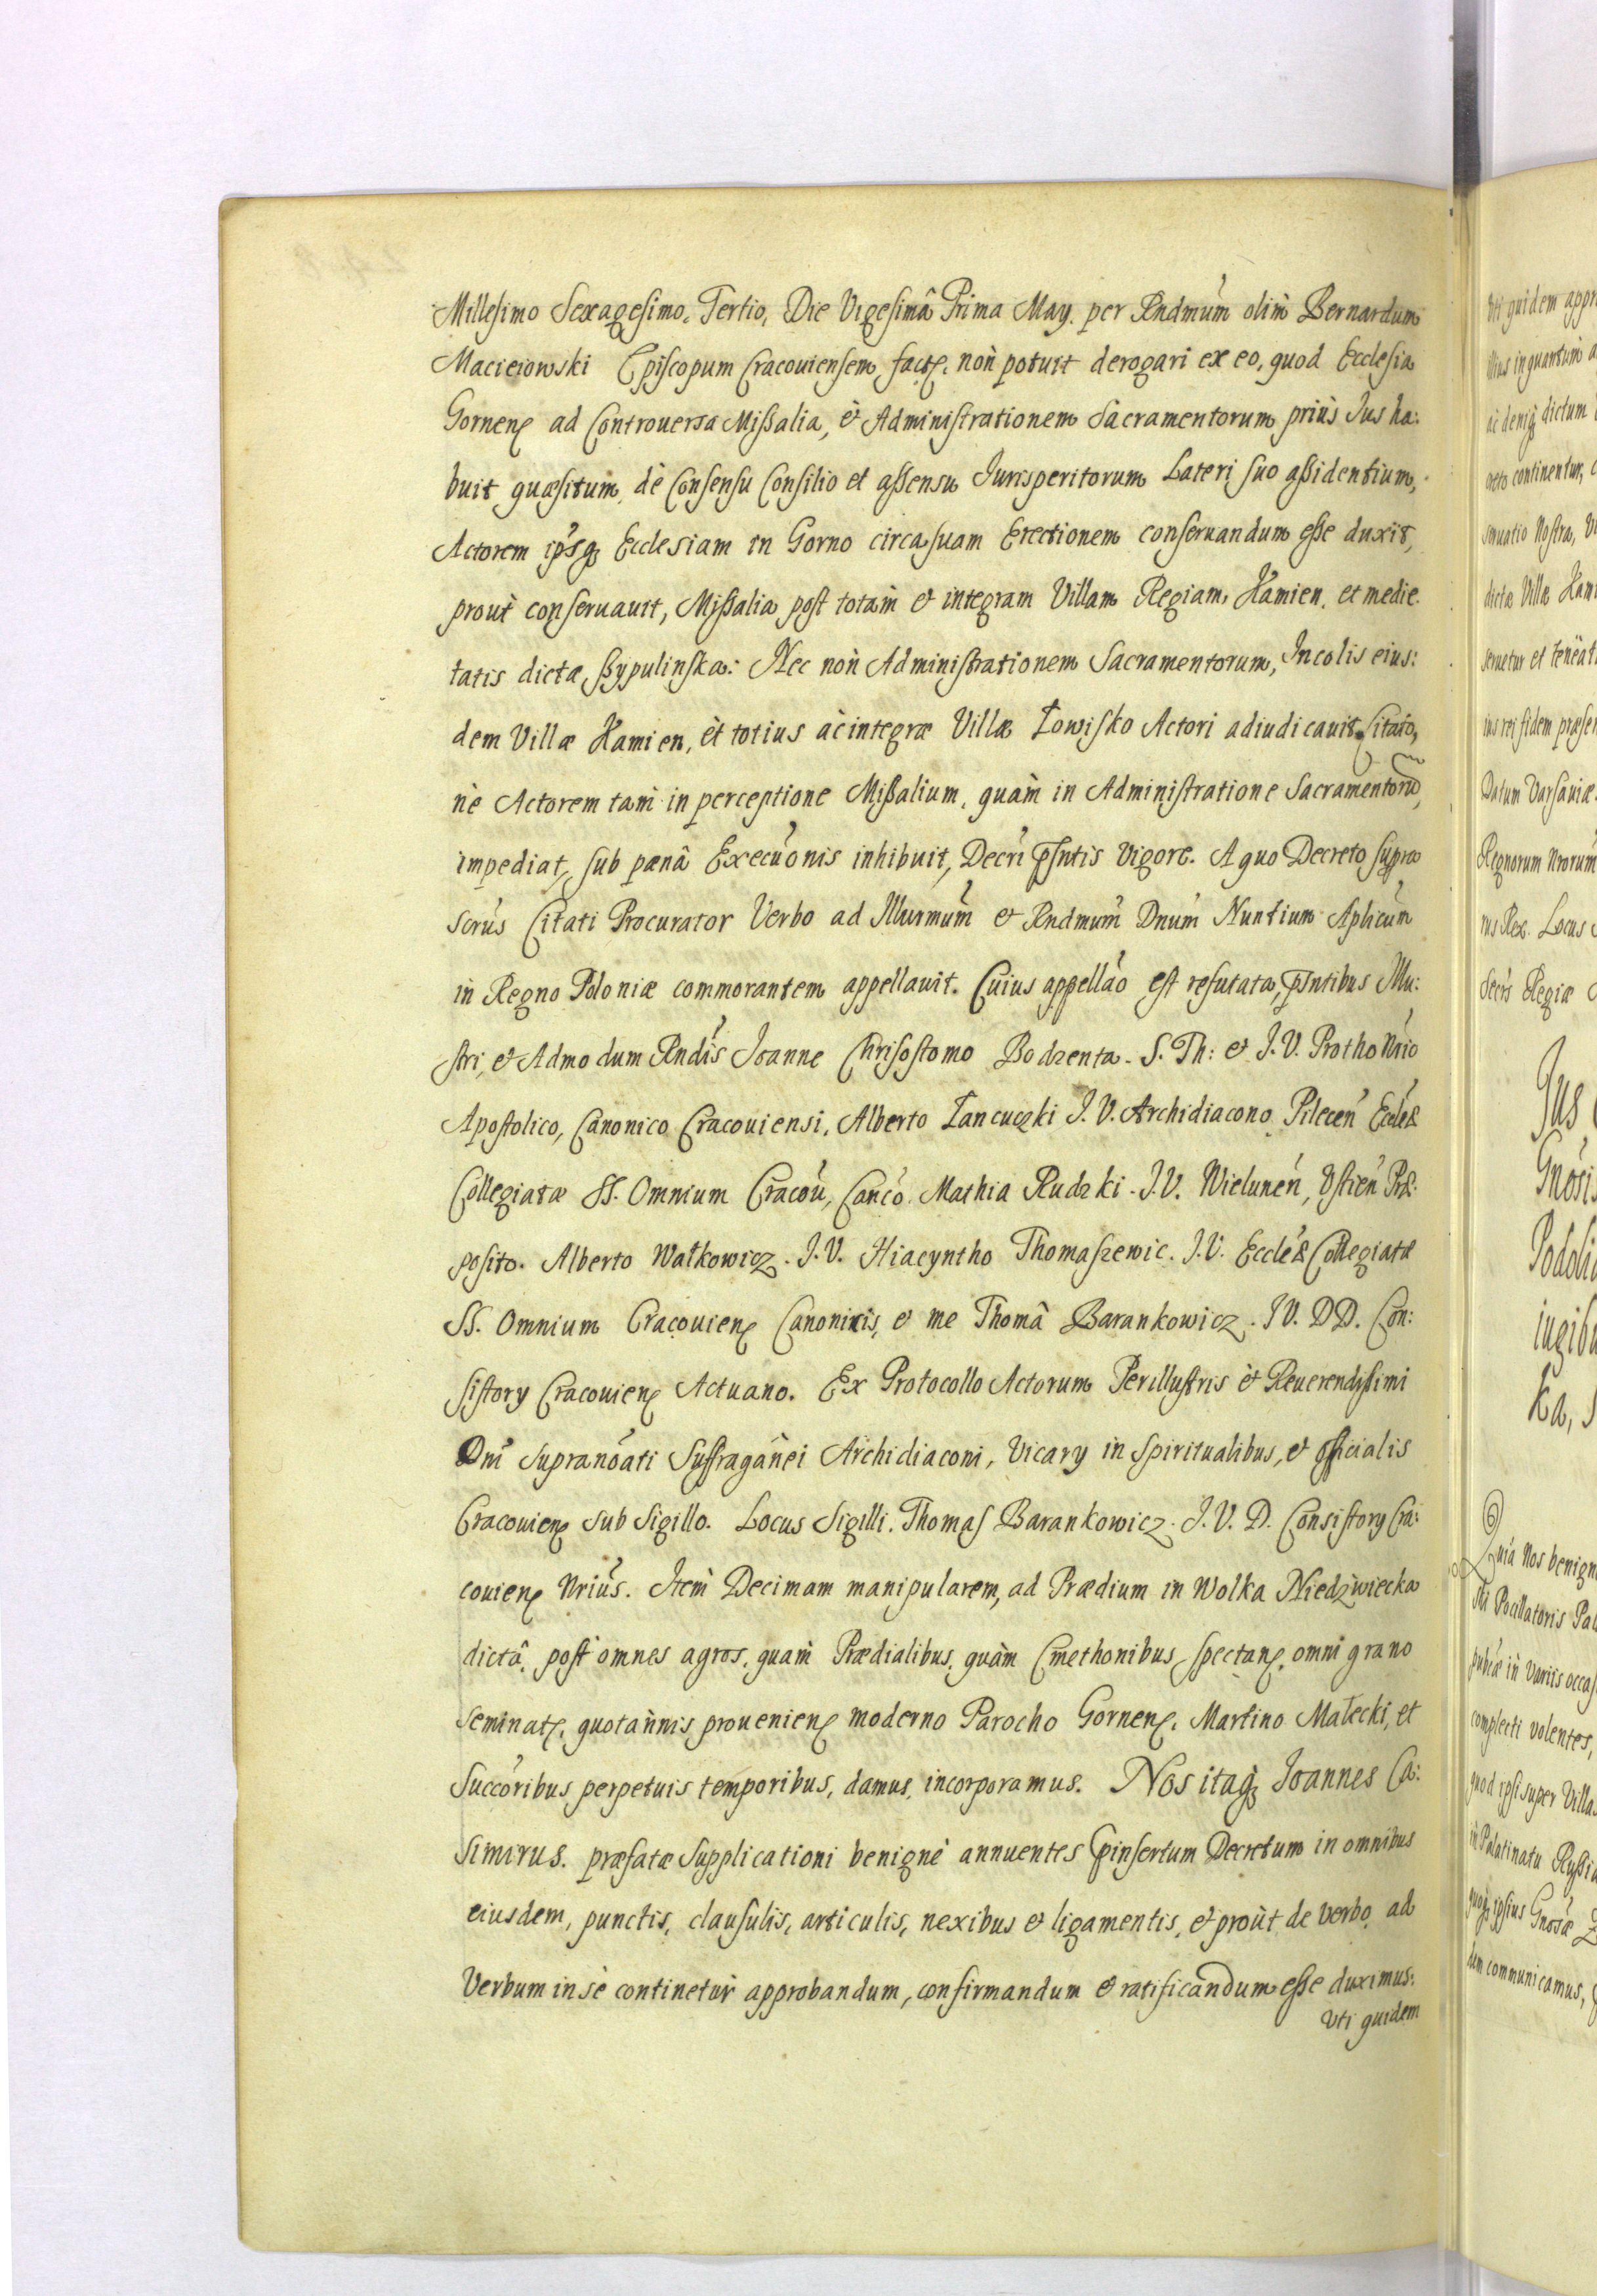 Millesimo Sexagesimo. Tertio, Die Vigesimâ Prima May. per Rndmum olim Bernardum
Macieiowski Episcopum Cracouiensem, factę, non potuit derogari ex eo, quod Ecclesia
Gornenę ad Controuersa Missalia, et Administrationem Sacramentorum prius Jus ha:
buit quæsitum, de Consensu Consilio et assensu Jurisperitorum Lateri suo assidentium,
Actorem ipsq Ecclesiam in Gorno circa suam Erectionem conseruandum esse duxit,
prout conseruauit, Missalia post totam et integram Villam Regiam, Kamien, et medie
tatis dictæ, Szypulinska: Nec non Administrationem Sacramentorum, Incolis eius:
dem Villæ Kamien, et totius ac integræ Villæ Łowisko Actori adiudicauit. Citato,
ne Actorem tam in perceptione Missalium, quam in Administratione Sacramentorū,
impediat, sub pænâ Execuonis inhibuit, Decri pntis vigore. A quo Decreto supra
scrus Citati Procurator Verbo ad Illurmum et Rndmum Dnum Nuntium Aplicum
in Regno Poloniæ commorantem appellauit. Cuius appellao est refutata, pntibus Illu:
stri, et Admodum Rndis Joanne Chrisostomo Bodzenta. S. Th: et J. V. Prothonrio
Apostolico, Canonico Cracouiensi, Alberto Łancuczki J. V. Archidiacono Pilecen Eccle&
Collegiatæ SS. Omnium Cracou, Canco. Mathia Rudzki. J. V. Wielunen, Ustien Præ.
posito. Alberto Wałkowicz. J. V. Hiacyntho Thomaszewic. J. V. Eccle& Collegiatæ
SS. Omnium Cracouienę Canonicis, et me Thomâ Barankowicz. J V. D D. Con:
sistory Cracouienę Actuario. Ex Protocollo Actorum Perillustris et Reuerendissimi
Dni supranoati Suffraganei Archidiaconi, Vicary in spiritualibus, et officialis
Cracouienę sub Sigillo. Locus Sigilli. Thomas Barankowicz. J. V. D. Consistory Cra:
couienę Nrius. Item Decimam manipularem, ad Prædium in Wolka Niedzwiecka
dictâ, post omnes agros, quam Prædialibus, quàm Cmethonibus spectanę, omni grano
seminatę, quotannis prouenienę moderno Parocho Gornenę, Martino Małecki, et
Succoribus perpetuis temporibus, damus, incorporamus. Nos itaq Joannes Ca:
simirus. præfatæ Supplicationi benigne annuentes pinsertum Decretum in omnibus
eiusdem, punctis, clausulis, articulis, nexibus et ligamentis, et prout de verbo ad
Verbum in se continetur approbandum, confirmandum et ratificandum esse duximus:
Uti quidem